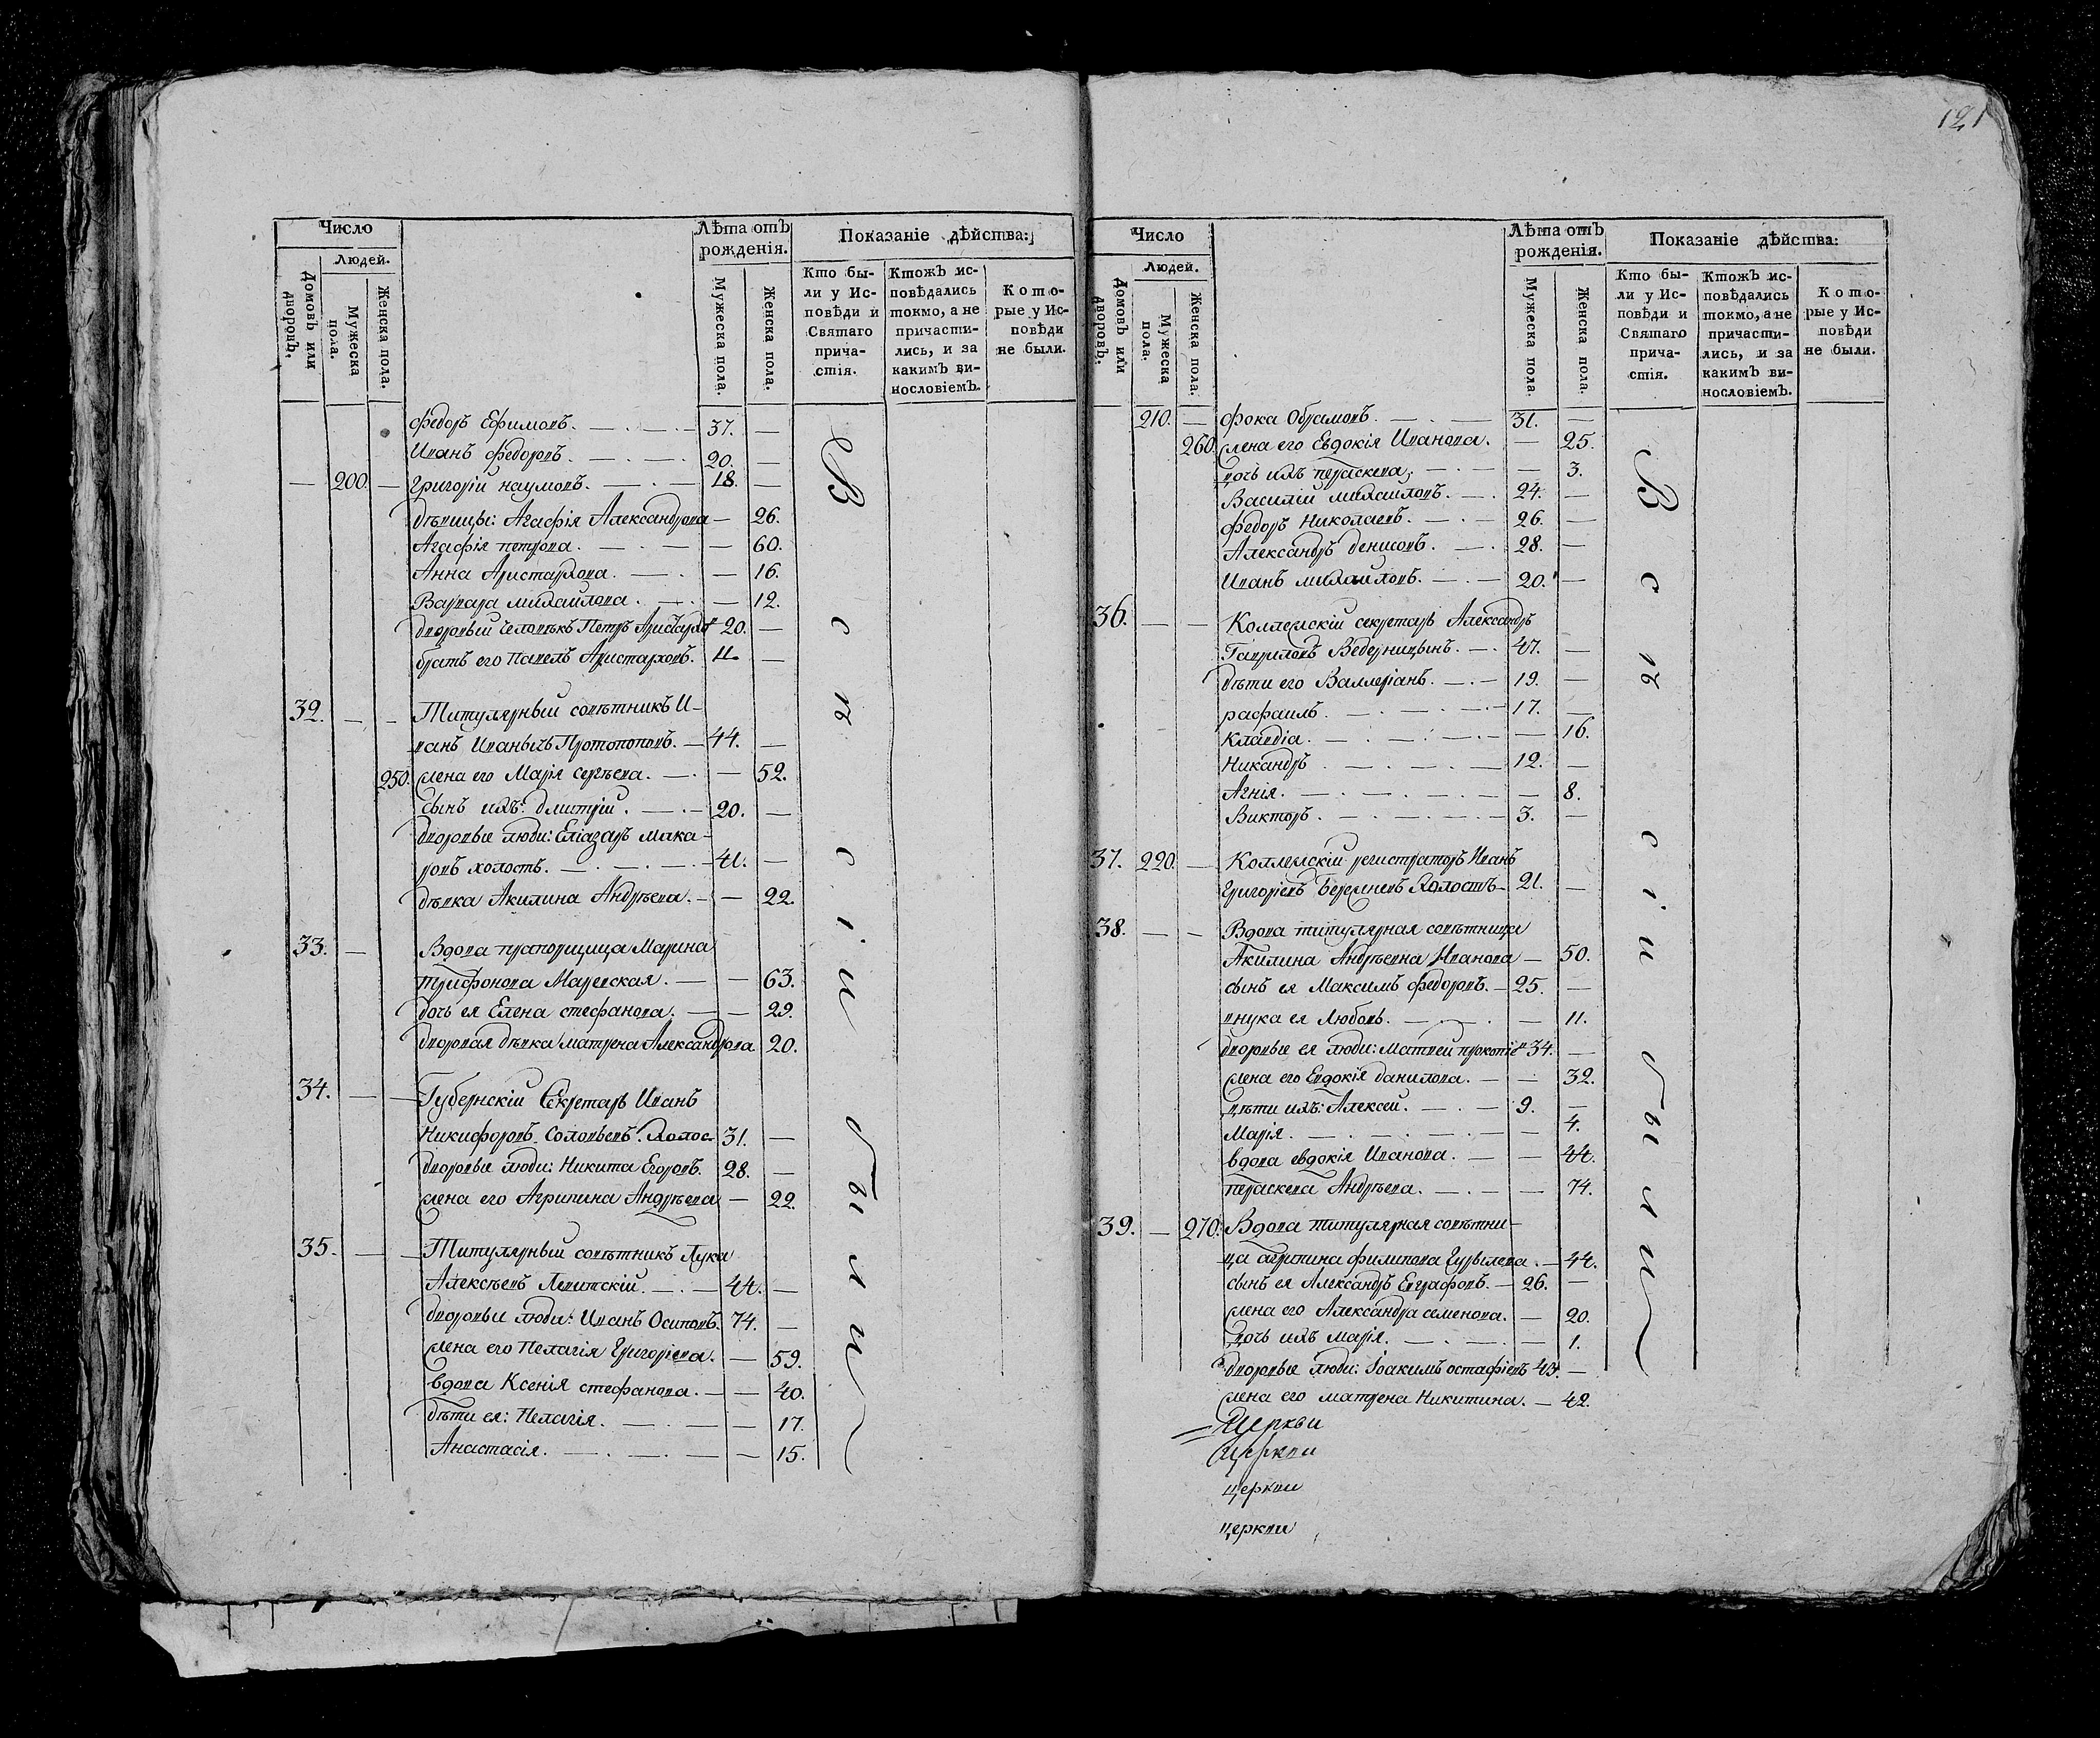 121
Число
Людей.
Домовъ или дворовъ.
Мужеска пола.
Женска пола.
Лѣта отъ рожденія.
Мужеска пола.
Женска пола.
Показаніе дѣйства:
Кто были у Исповѣди и Святаго причастія.
Ктожъ исповѣдались токмо, а не причастились, и за какимъ винословіемъ.
Которые у Исповѣди не были.
Федоръ Ефимовъ. 37. —
Иванъ Федоровъ. 20. —
— 200. — Григорій Наумовъ. 18. —
дѣвицы: Агафія Александрова — 26.
Агафія Петрова. — 60.
Анна Аристархова. — 16.
Варвара Михаилова. — 12.
дворовый человѣкъ Петръ 20. —
братъ его Павелъ Аристарховъ. 11. —
32. — — Титулярный совѣтникъ И-
ванъ Иванычъ Протопоповъ. — 44. —
250. жена его Марія Сергѣева. — 52.
сынъ ихъ: Дмитрій. 20. —
дворовые люди: Еліазаръ Мака-
ровъ холостъ. 41. —
дѣвка Акилина Андрѣева. — 22.
33. — Вдова прапорщица Марина
Трифонова Маревская. — 63.
дочь ея Елена Стефанова. — 29.
дворовая дѣвка Матрена Александрова 20.
34. — — Губернскій Секретарь Иванъ
Никифоровъ Соловьевъ. холос- 31. —
дворовые люди: Никита Егоровъ. 28. —
жена его Агрипина Андрѣева — 22.
35. — — Титулярный совѣтникъ Лука
Алексѣевъ Левитскій. — 44. —
дворовые люди: Иванъ Осиповъ. 74. —
жена его Пелагія Григоріева. — 59.
вдова Ксенія Стефанова. — 40.
дѣти ея: Пелагія. — 17.
Анастасія. — 15.
Всѣ сіи были
Число
Людей.
Домовъ или дворовъ.
Мужеска пола.
Женска пола.
Лѣта отъ рожденія.
Мужеска пола.
Женска пола.
Показаніе дѣйства:
Кто были у Исповѣди и Святаго причастія.
Ктожъ исповѣдались токмо, а не причастились, и за какимъ винословіемъ.
Которые у Исповѣди не были.
210. — Фока Обрамовъ. 31. —
260. жена его Евдокія Иванова. — 25.
дочь ихъ Параскева. — 3.
Василій Михаиловъ. 24. —
Федоръ Николаевъ. 26. —
Александръ Денисовъ. 28. —
Иванъ Михаиловъ. 20. —
36. — — Коллежскій секретарь Александръ
Гавриловъ Ведерницынъ. 47. —
дѣти его Валлеріанъ. 19. —
Рафаилъ. 17. —
Клавдіа. — 16.
Никандръ 12. —
Агнія. — 8.
Викторъ. 3. —
37. 220. — Коллежскій регистраторъ Иванъ
Григоріевъ Бережневъ Холостъ — 21. —
38. — — Вдова титулярная совѣтница
Акилина Андрѣевна Иванова — 50.
сынъ ея Максимъ Федоровъ. — 25. —
внука ея Любовь. — 11.
дворовые ея люди: Матвей Прокопіевъ 34. —
жена его Евдокія Данилова. — 32.
дѣти ихъ: Алексей. 9. —
Марія. — 4.
вдова Евдокія Иванова. — 44.
Параскева Андрѣева. — 74.
39. — 270. Вдова титулярная совѣтни-
ца Агрипина Филипова Гурылева. — 44.
сынъ ея Александръ Евграфовъ. — 26. —
жена его Александра Семенова. — 20.
дочь ихъ Марія. — 1.
дворовые люди: Іоакимъ Остафіевъ 43. —
жена его Матрена Никитина. — 42.
Всѣ сіи были
Церкви
Церкви
церкви
церкви